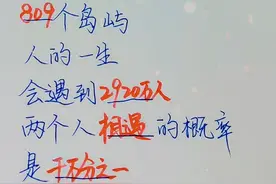 809个岛屿
人的一生
会遇到2920万人
两个人相遇的概率
是千万分之一